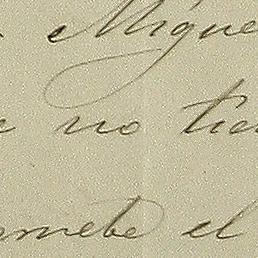 Migue
e no tien
omete el